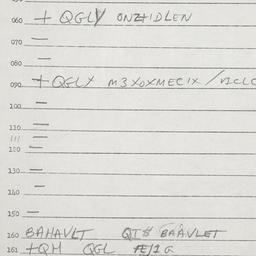 060 + QGLY ONZHIDLEN
070 —
080 —
090 + QGLY M3XOXMECIX /VICLC
100 —
110 —
111 —
120 —
130 —
140 —
150 —
160 BAHAVLT QT$ BAAVLET
161 +QM QGL FE/IG